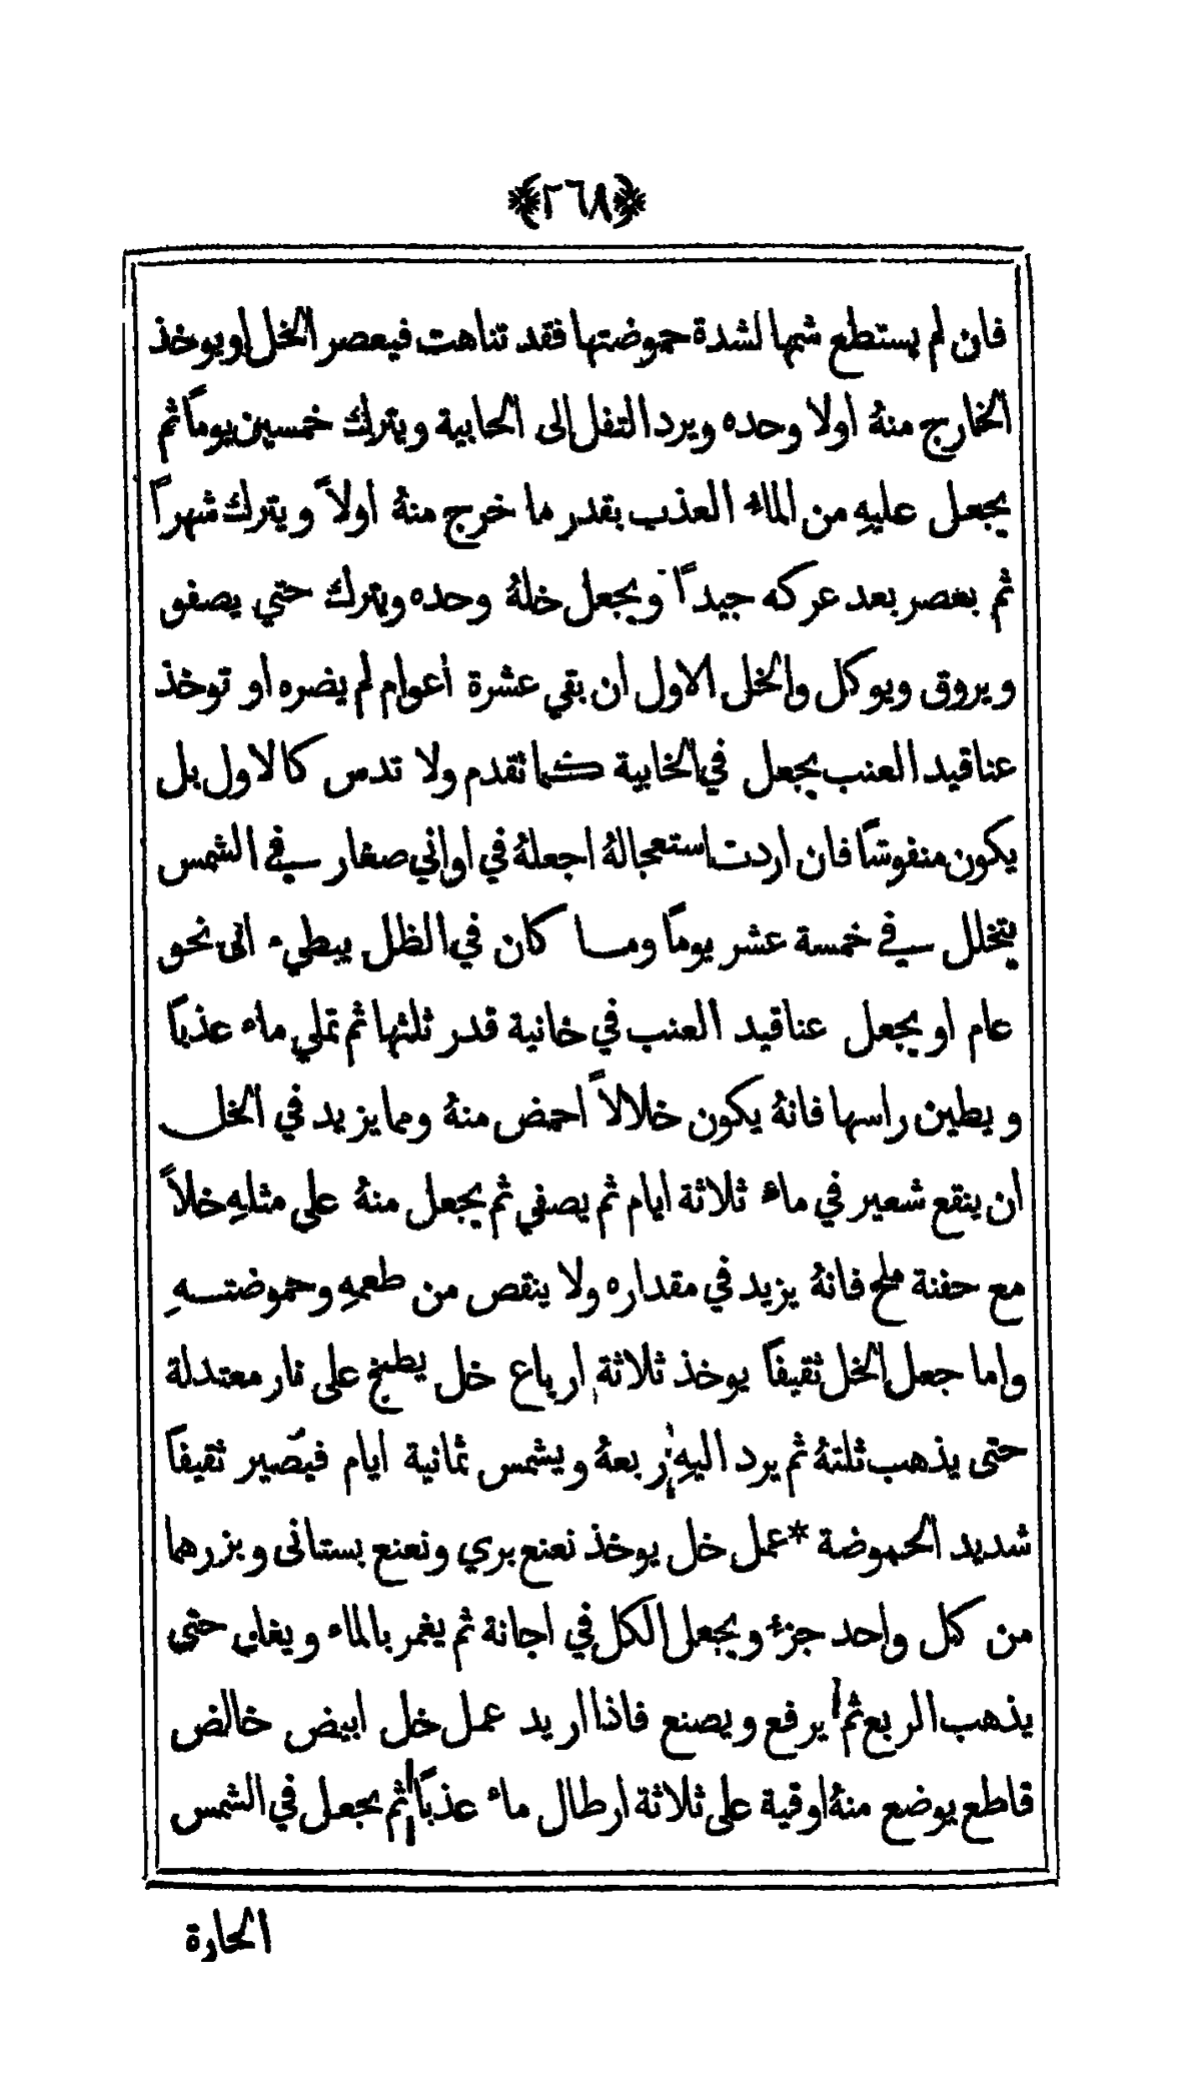 ﴿٢٦٨﴾
فان لم يستطع شمها لشدة حموضتها فقد تناهت فيعصر الخل ويوخذ
الخارج منهُ اولا وحده ويرد التفل الى الحابية ويترك خمسين يوماً ثم
يجعل عليهِ من الماء العذب بقدر ما خرج منهُ اولاً ويترك شهراً
ثم بعصر بعد عركه جيداً ويجعل خلهُ وحده ويترك حتي يصفو
ويروق ويوكل والخل الاول ان بقي عشرة أعوام لم يضره او توخذ
عناقيد العنب يجعل في الخابية كما تقدم ولا تدس كالاول بل
يكون منفوشاً فان اردت استعجالهُ اجعلهُ في اواني صغار في الشمس
يتخلل في خمسة عشر يوماً وما كان في الظل يبطيء الى نحو
عام او يجعل عناقيد العنب في خانية قدر ثلثها ثم تملي ماء عذباً
ويطين راسها فانهُ يكون خلالاً احمض منهُ ومما يزيد في الخل
ان ينقع شعير في ماء ثلاثة ايام ثم يصفي ثم يجعل منهُ على مثلهِ خلاً
مع حفنة ملح فانهُ يزيد في مقداره ولا ينقص من طعمهِ وحموضتهِ
واما جعل الخل ثقيفاً يوخذ ثلاثة ارباع خل يطبخ على نار معتدلة
حتى يذهب ثلثهُ ثم يرد اليهِ ربعهُ ويشمس ثمانية ايام فيصير ثقيفاً
شديد الحموضة * عمل خل يوخذ نعنع بري ونعنع بستانى وبزرهما
من كل واحد جزء ويجعل الكل في اجانة ثم يغمر بالماء ويغلي حتي
يذهب الربع ثم يرفع ويصنع فاذا اريد عمل خل ابيض خالض
قاطع يوضع منهُ اوقية على ثلاثة ارطال ماء عذباً ثم يجعل في الشمس
الحارة